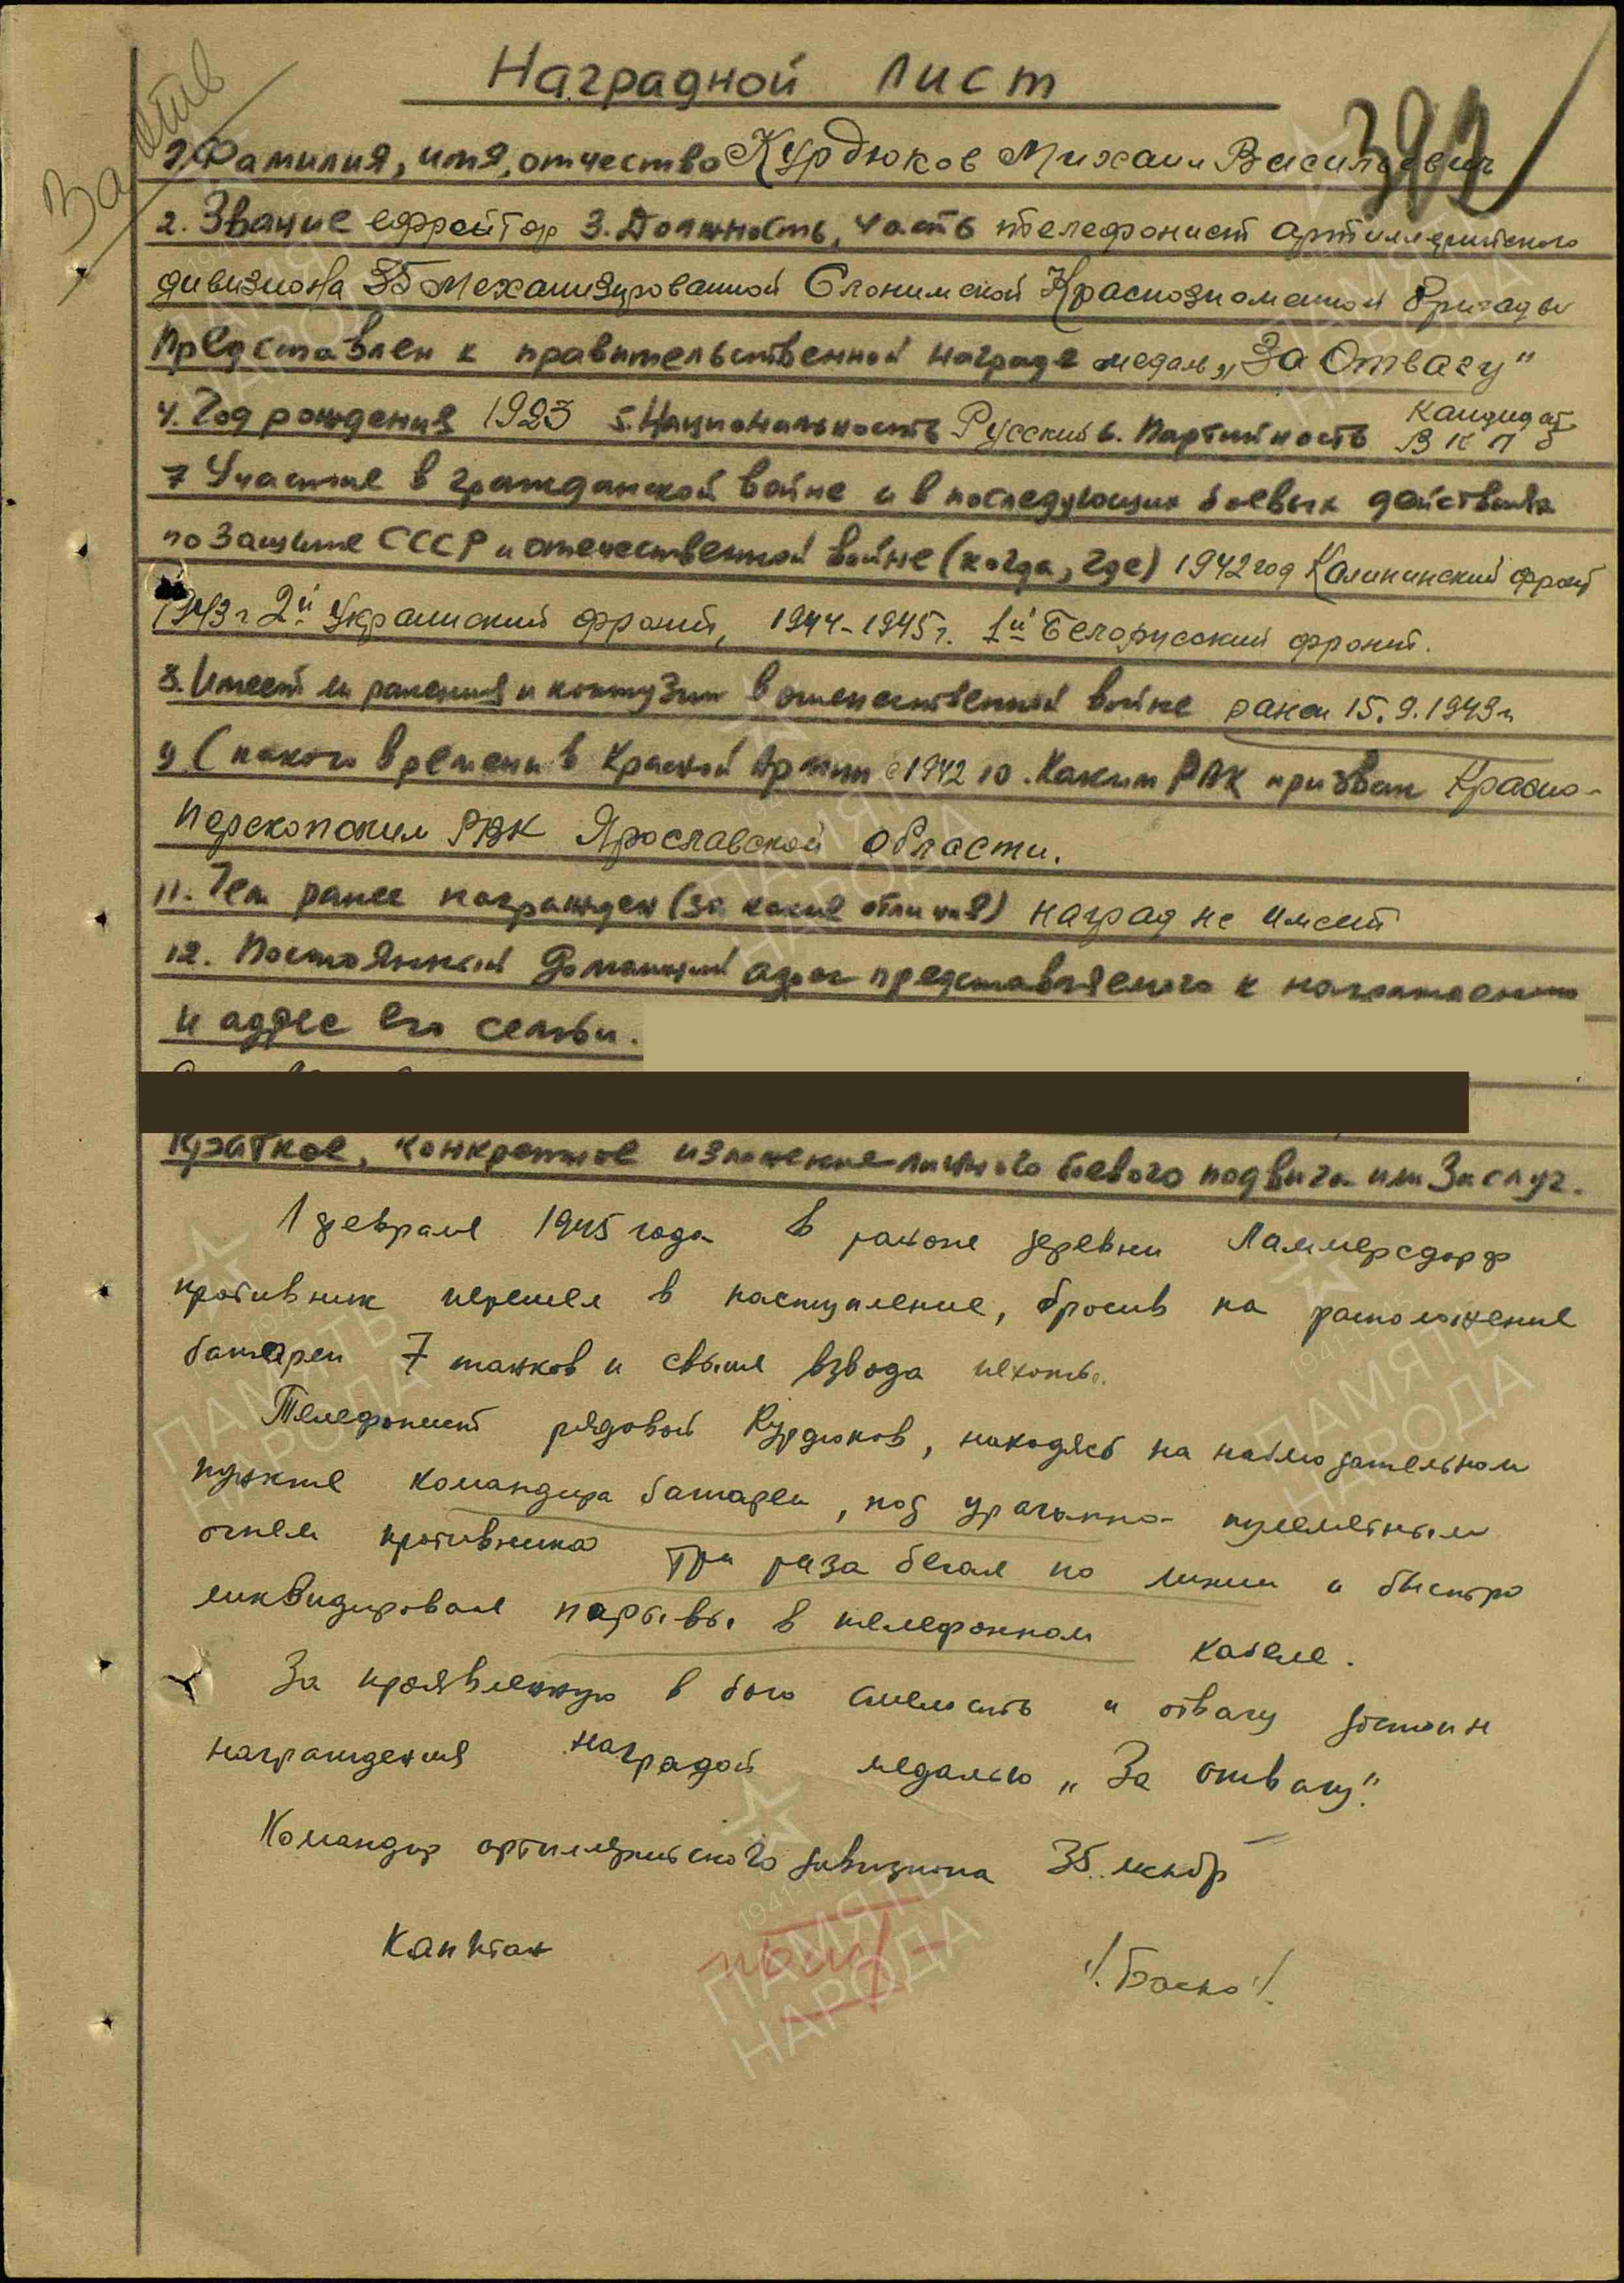 За отв
Наградной лист
392
1. Фамилия, имя, отчество Курдюков Михаил Васильевич
2. Звание ефрейтор 3. Должность, часть телефонист артиллерийского
дивизиона 35 механизированной Слонимской Краснознаменной бригады
Представлен к правительственной награде медаль „За Отвагу"
4. Год рождения 1923 5. Национальность Русский 6. Партийность Кандидат ВКП б
7 Участие в гражданской войне и в последующих боевых действиях
по защите СССР и отечественной войне (когда, где) 1942 год Калининский фронт
1943 г 2й Украинский фронт, 1944-1945 г. 1й Белорусский фронт.
8. Имеет ли ранения и контузии в отечественной войне ранен 15.9.1943 г
9 С какого времени в Красной Армии с 1942 10. Каким РВК призван Красно-
перекопским РВК Ярославской области.
11. Чем ранее награжден (за какие отличия) наград не имеет
12. Постоянный домашний адрес представляемого к награждению
и адрес его семьи.
Краткое, конкретное изложение личного боевого подвига или заслуг.
1 февраля 1945 года в районе деревни Ламмерсдорф
противник перешел в наступление, бросив на расположение
батареи 7 танков и свыше взвода пехоты.
Телефонист рядовой Курдюков, находясь на наблюдательном
пункте командира батареи, под ураганно-пулеметным
огнем противника три раза бегал по линии и быстро
ликвидировал порывы в телефонном кабеле.
За проявленную в бою смелость и отвагу достоин
награждения наградой медалью „За отвагу".
Командир артиллерийского дивизиона 35 мехбр
Капитан /Баско/
ПАМЯТЬ
НАРОДА
1941-1945